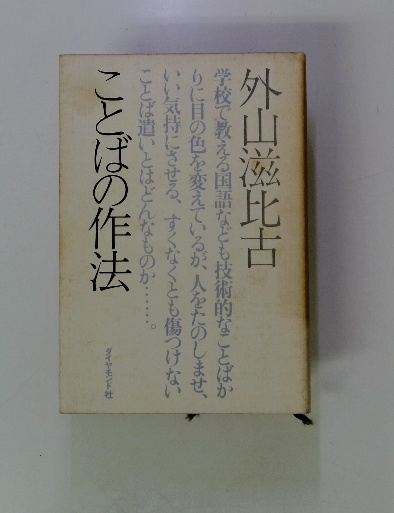 外山滋比古
学校で教える国語なども技術的なことばか
りに目の色を変えているが、人をたのしませ、
いい気持にさせる、すくなくとも傷つけない
ことば遣いとはどんなものか……。
ことばの作法
ダイヤモンド社